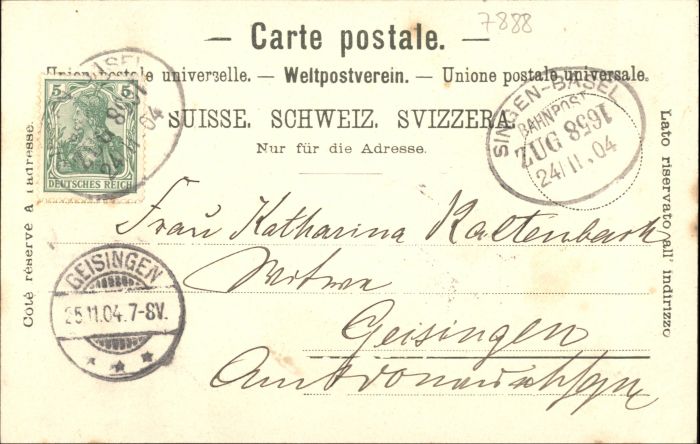 7888
— Carte postale. —
Union postale universelle. — Weltpostverein. — Unione postale universale.
SUISSE. SCHWEIZ. SVIZZERA.
Nur für die Adresse.
Côté réservé à l'adresse.
Lato riservato all' indirizzo
5 5
DEUTSCHES REICH
BASEL
ZUG 8591
24 11 04
SINGEN-BASEL
BAHNPOST
ZUG 8591
24/11.04
GEISINGEN
25.11.04.7-8V.
Frau Katharina Kaltenbach
Witwe
Geisingen